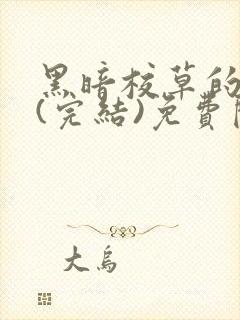 黑暗校草的
(完結)免費
大烏